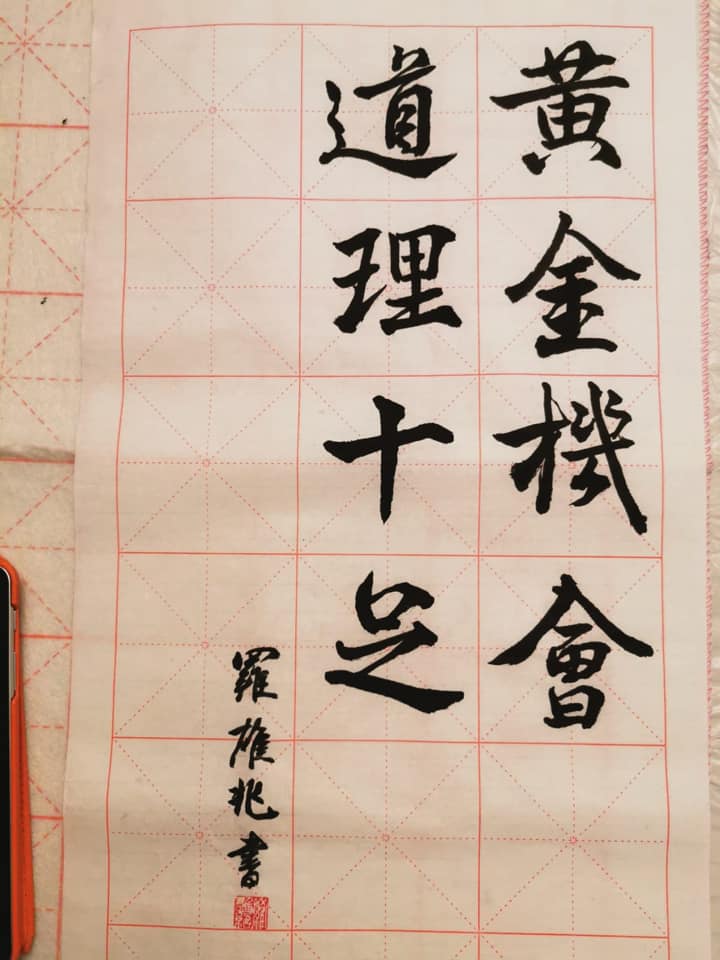 黃金機會
道理十足
羅雄兆書